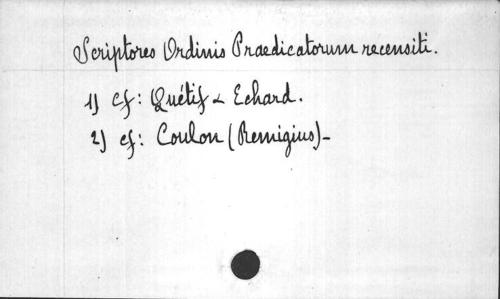 Scriptores Ordinis Praedicatorum recensiti.
1) cf: Quétif & Echard.
2) cf: Coulon (Remigius)-